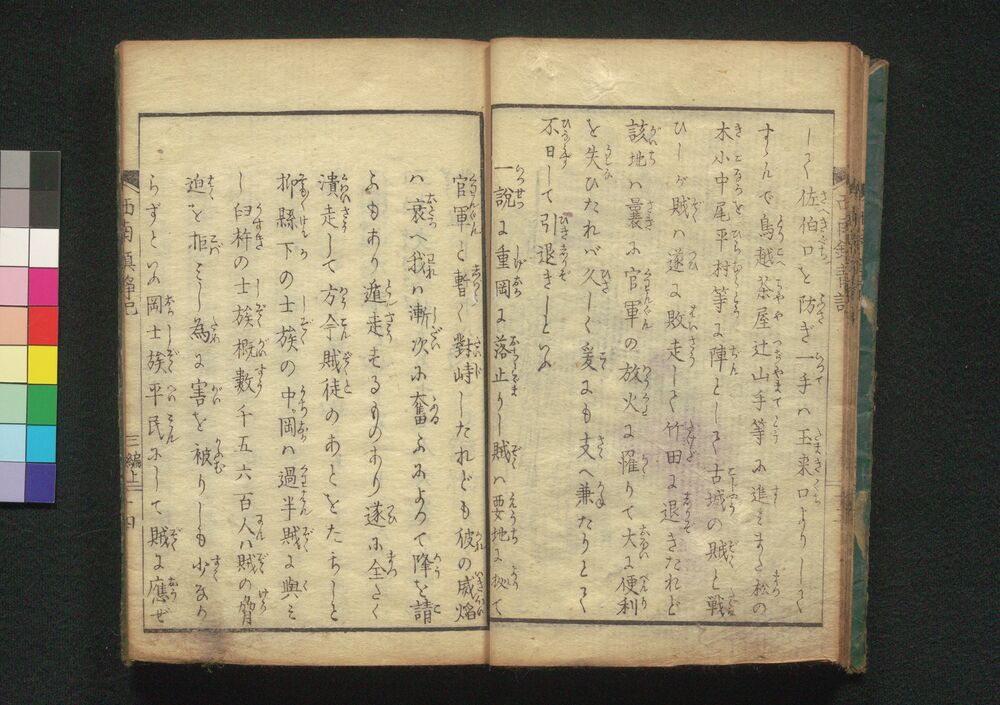 して佐伯口を防ぎ一手ハ玉来口よりして
すゝんで鳥越茶屋辻山手等に進みまた松の
木小中尾平村等に陣として古城の賊と戦
ひしが賊ハ遂に敗走して竹田に退きたれど
該地ハ曩に官軍の放火に羅りて大に便利
を失ひたれバ久しく爰にも支へ兼たりとて
不日して引退きしといふ
一説に重岡に落止りし賊ハ要地に拠て
官軍と暫く對峙したれども彼の威焔
ハ衰へ我ハ漸次に奮ふによつて降を請
ふもあり遁走するものあり遂に全たく
潰走して方今賊徒のあとをたちしと
抑縣下の士族の中岡ハ過半賊に與ミ
し臼杵の士族概數千五六百人ハ賊の脅
迫を拒ミし為に害を被りしも少なか
らずといふ岡士族平民にして賊に應ぜ
西南鎮静記
三編上
十四